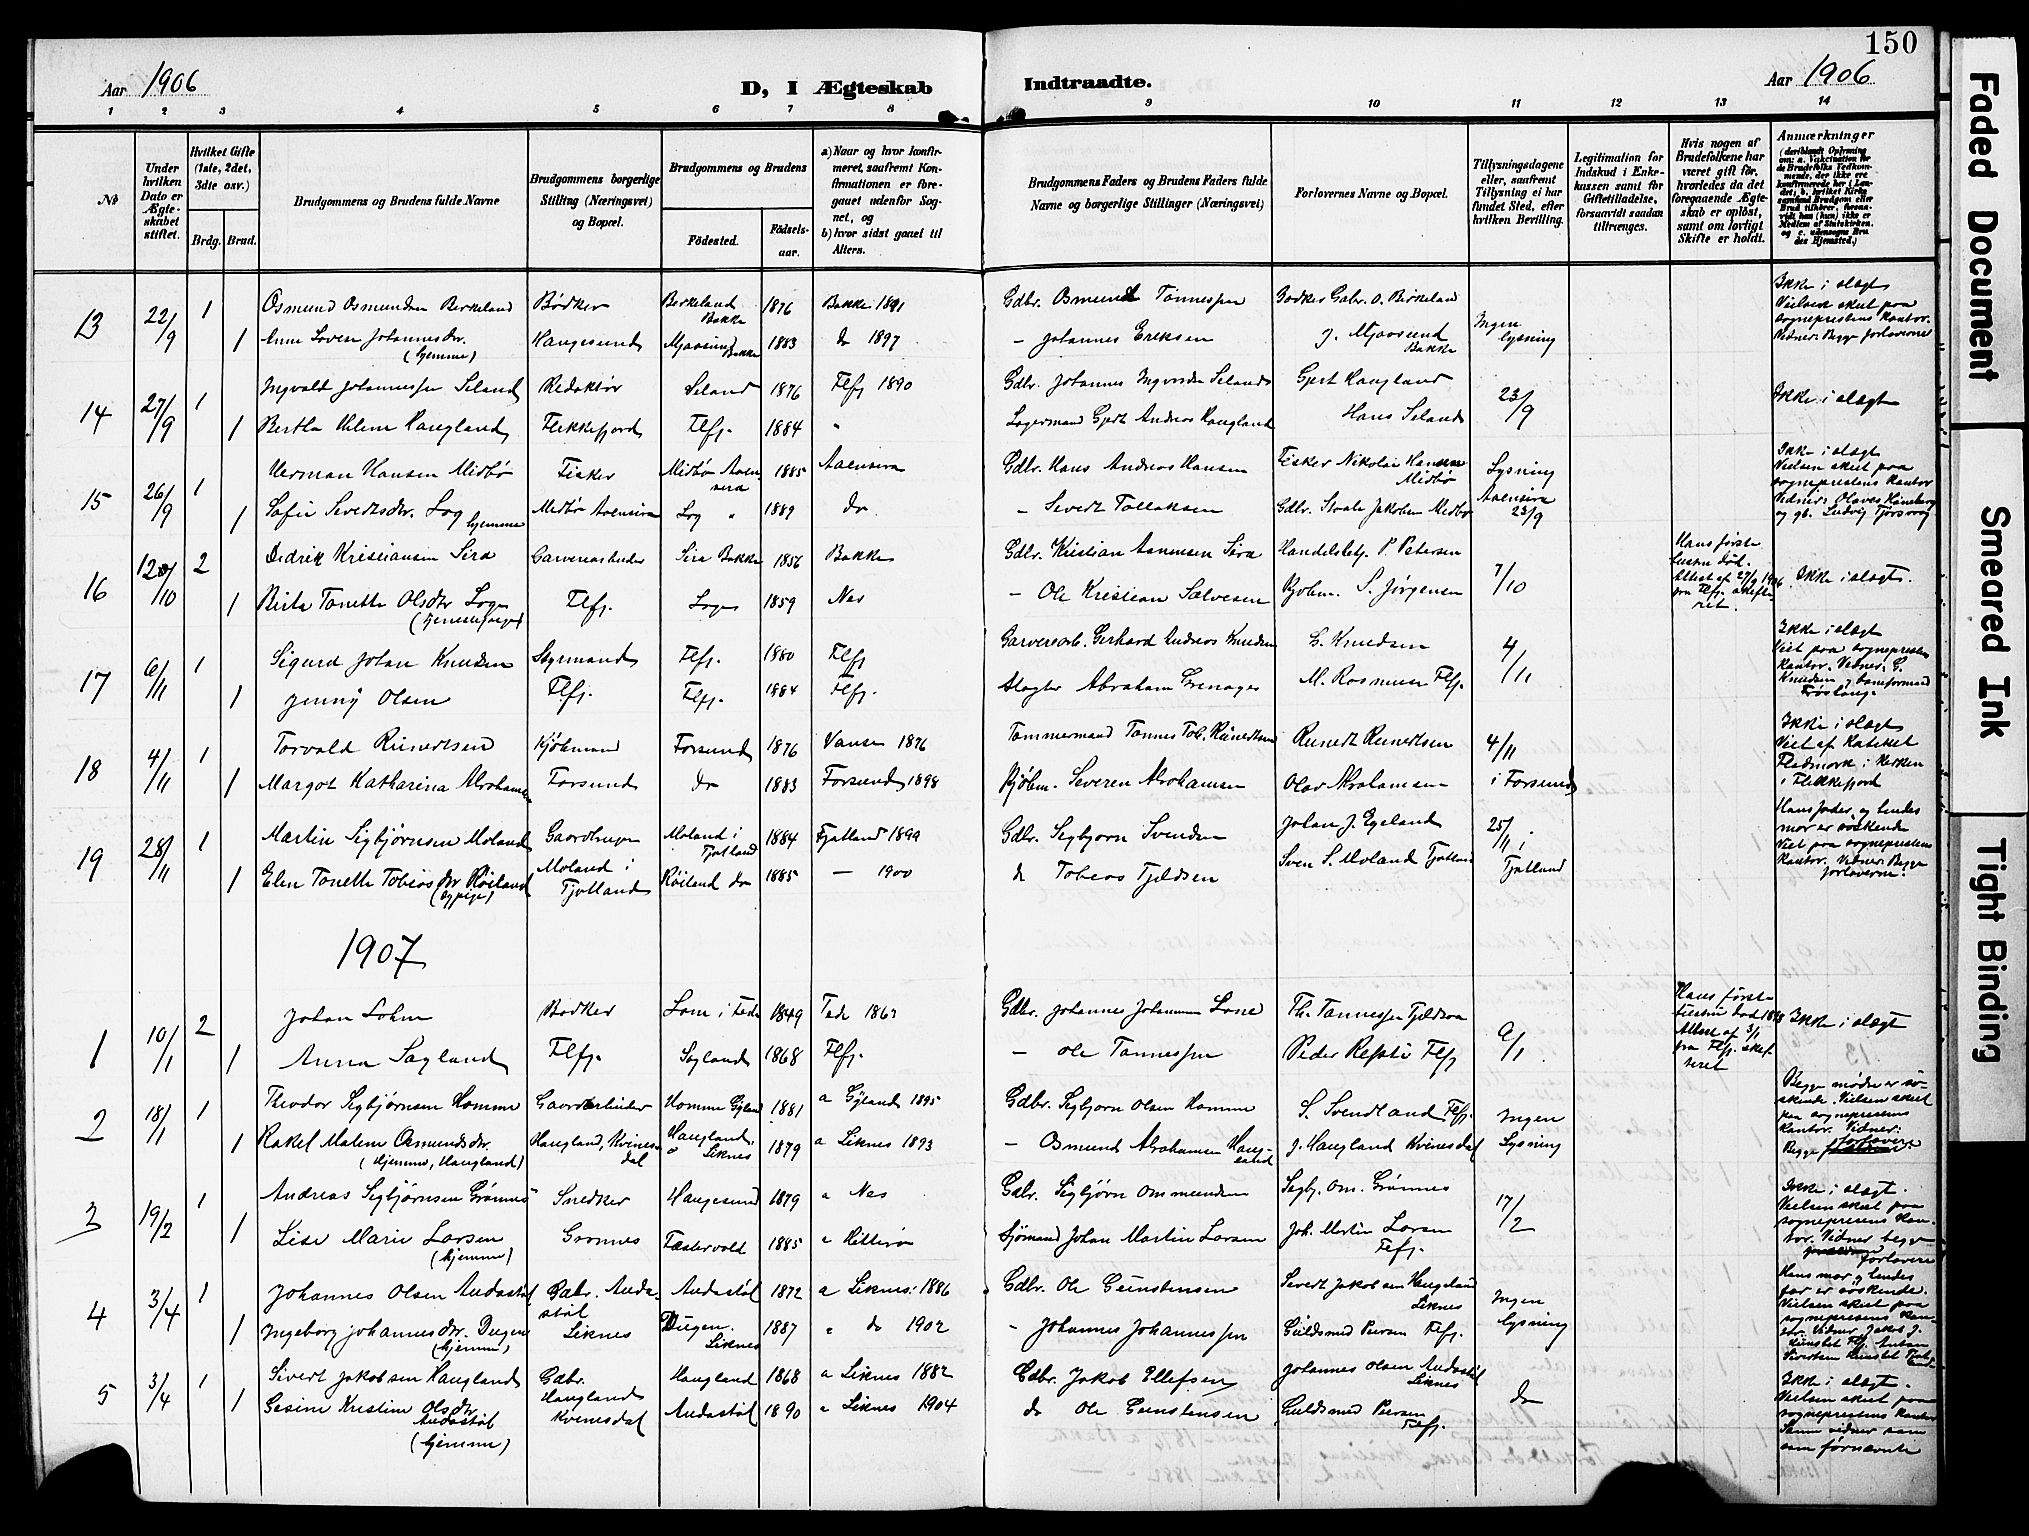 150
Aar 1906
D, I Ægteskab
Indtraadte.
Aar 1906
1 2 3 4 5 6 7 8 9 10 11 12 13 14
No
Under hvilken Dato er Ægteskabet stiftet.
Hvilket Gifte (1ste, 2det, 3die osv.)
Brdg. Brud.
Brudgommens og Brudens fulde Navne
Brudgommens borgerlige Stilling (Næringsvei) og Bopæl.
Brudgommens og Brudens
Födested.
Födselsaar.
a) Naar og hvor konfirmeret, saafremt Konfirmationen er foregaaet udenfor Sognet, og
b) hvor sidst gaaet til Alters.
Brudgommens Faders og Brudens Faders fulde Navne og borgerlige Stillinger (Næringsvei)
Forlovernes Navne og Bopæl.
Tillysningsdagene eller, saafremt Tillysning ei har fundet Sted, efter hvilken Bevilling.
Legitimation for Indskud i Enkekassen samt for Giftetilladelse, forsaavidt saadan tiltrænges.
Hvis nogen af Brudefolkene har været gift før, hvorledes da det foregaaende Ægteskab er opløst, samt om lovligt Skifte er holdt.
Anmærkninger
13 22/9 1 Osmund Osmundsen Berkeland Bødker Berkeland Bakke 1876 Bakke 1891 Gdbr. Osmund Tønnessen Bødker Gabr. O. Birkeland Ingen lysning Ikke i slægt Vielsen skeet paa sogneprestens Kontor. Vidner: Begge forloverne
1 Anne Soven Johannesdtr. (hjemme) Haugesund Mjaasund Bakke 1883 do 1897 - Johannes Eriksen J. Mjaasund Bakke
14 27/9 1 Ingvald Johannessen Seland Redaktør Seland 1876 Flfj 1890 Gdbr. Johannes Ingvordsen Seland Gjert Haugland 23/9 Ikke i slægt
1 Bertha Helene Haugland Flekkefjord Flfj. 1884 " Lagermand Gjert Andreas Haugland Hans Seland
15 26/9 1 Herman Hansen Midbø Fisker Midbø Aaensira 1885 Aaensira Gdbr. Hans Andreas Hansen Fisker Nikolai Hansen Midbø Lysning Aaensira 23/9 Ikke i slægt Vielsen skeet paa sogneprestens Kontor
1 Sofie Sevedtsdtr. Log hjemme Midbø Aaensira Log " 1889 do - Sevedt Tollaksen Gdbr. Staale Jakobsen Midbø
16 20/10 2 Didrik Kristiansen Sira Garveriarbeider Sira Bakke 1856 Bakke Gdbr. Kristian Aanensen Sira Handelsbetj. P. Petersen 7/10 Hans første hustru død. Attest af 27/9 1906 fra Flfj. skifteret. Ikke i slægt.
1 Berta Tonette Olsdtr Loge Flfj. Loge 1859 Nes - Ole Kristian Salvesen Kjøbm. S. Jørgensen
17 6/11 1 Sigurd Johan Knudsen Styrmand Flfj. 1880 Flfj Garveriarb. Gerhard Andreas Knudsen G. Knudsen 4/11 Ikke i slægt Viet paa sogneprestens Kontor. Vidner: G. Knudsen
1 Jenny Olsen Flfj. Flfj. 1884 Flfj. Slagter Abraham Grenages M. Rasmusen Flfj.
18 4/11 1 Torvald Reinertsen Kjøbmand Farsund 1876 Vanse 1876 Tømmermand Tønnes Tob. Reinertsen Reinert Reinertsen 4/11 i Farsund Ikke i slægt Viet af Kateket Fladmark i Kirken i Flekkefjord
1 Margot Katharina Abrahamsen Farsund do 1883 Farsund 1898 Kjøbm. Severen Abrahamsen Olav Abrahamsen
19 28/11 1 Martin Sigbjørnsen Moland Gaardbruger Moland i Fjotland 1884 Fjotland 1899 Gdbr. Segbjorn Svendsen Johan J. Egeland 25/11 i Fjotland Hans fader og hendes mor er søskende Viet paa sogneprestens Kontor. Vidner: Begge forloverne.
1 Elen Tonette Tobiasdtr Røiland Moland i Fjotland Røiland do 1885 — 1900 do Tobias Tjeldsen Sven S. Moland Fjotland
1907
1 10/1 2 Johan Lohne Bødker Lone i Fede 1849 Fede 1863 Gdbr. Johannes Johannesen Lone Th. Tønnessen Tjeldsaa 9/1 Hans første hustru død 1898 Attest af 3/1 fra Flfj. skifteret Ikke i slægt
1 Anna Søyland Flfj. Søyland 1868 Flfj. - Ole Tønnessen Peder Refsti Flfj
2 18/1 1 Theodor Segbjørnsen Homme Gaardarbeider Homme Gyland 1881 a Gyland 1895 Gdbr. Segbjorn Olsen Homme S. Svendland Flfj. Ingen Lysning Begge mødre er søskende. Vielsen skeet paa sognepresens Kontor. Vidner: Begge forlovere
1 Rakel Malene Osmundsdtr. (hjemme, Haugland) Haugland, Kvinesdal Haugland, Liknes 1879 a Liknes 1893 - Osmund Abrahamsen Haugeland J. Haugland Kvinesdal
3 19/2 1 Andreas Segbjørnsen Grønnes Snedker Haugesund 1879 a Nes Gdbr. Sigbjørn Ommundsen Segbj. Om. Grønnes 17/2 Ikke i slægt. Vielsen skeet paa sognepresens Kontor. Vidner begge forlovere
1 Lise Marie Larsen (hjemme) Grønnes 1885 a Hitterø Sjømand Johan Martin Larsen Joh. Martin Larsen Flfj.
4 3/4 1 Johannes Olsen Audastøl Gabr. Audastøl Audastøl 1872 a Liknes: 1886 Gdbr. Ole Gunstensen Sevedt Jakobsen Haugeland Liknes Ingen lysning Hans mor og hendes far er søskende. Vielsen skeet paa sognepresens Kontor.
1 Ingeborg Johannesdtr. Dugen (hjemme) Liknes Dugen. Liknes 1887 " do 1902 - Johannes Johannessen Guldsmed Iversen Flfj.
5 3/4 1 Sivert Jakobsen Haugland Gdbr. Haugland 1868 a Liknes 1882 Gdbr. Jakob Ellefsen Johannes Olsen Audastøl Liknes do Ikke i slægt. Vielsen skeet paa sognepresens Kontor Samme vidner som som førnævnte
1 Gesine Kristine Olsdtr. Audastøl (hjemme) Haugland Kvinesdal Audastøl 1890 a Liknes 1904 do Ole Gunstensen Guldsmed Iversen Flfj.
Faded Document
Smeared Ink
Tight Binding